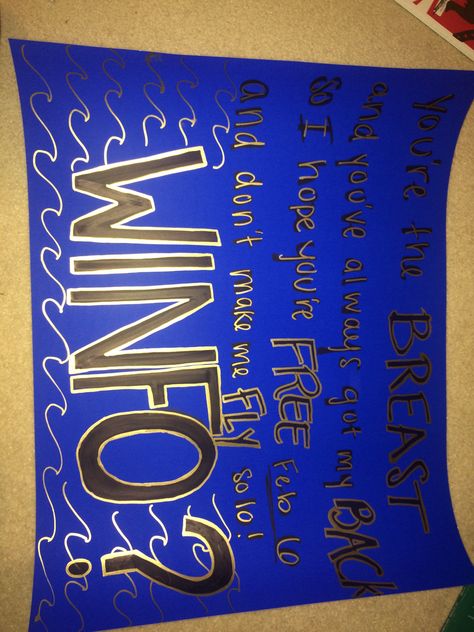 You're the BREAST
and you've always got my BACK
So I hope you're FREE Feb 6
and don't make me FLY solo!
WINFO?